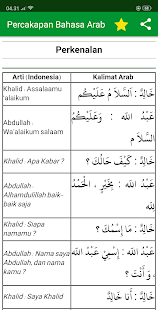 04.31
Percakapan Bahasa Arab
Perkenalan
Arti (Indonesia)
Kalimat Arab
Khalid : Assalaamu
'alaikum
خَالِدٌ : اَلسَّلاَ مُ عَلَيْكُمْ
Abdullah :
Wa'alaikum salaam
عَبْدُ اللهِ : وَعَلَيْكُمُ
السَّلاَ مُ
Khalid : Apa Kabar ?
خَالِدٌ : كَيْفَ حَالُكَ ؟
Abdullah :
Alhamdulillah baik-
baik saja
عَبْدُ اللهِ : بِخَيْرٍ , اَلْحَمْدُ
للهِ
Khalid : Siapa
namamu ?
خَالِدٌ : مَا إِسْمُكَ ؟
Abdullah : Nama saya
Abdullah, dan nama
kamu ?
عَبْدُ اللهِ : إِسْمِيْ عَبْدُ اللهِ
, وَ أَنْتَ ؟
Khalid : Saya Khalid
خَالِدٌ : أَنَا خَالِدٌ